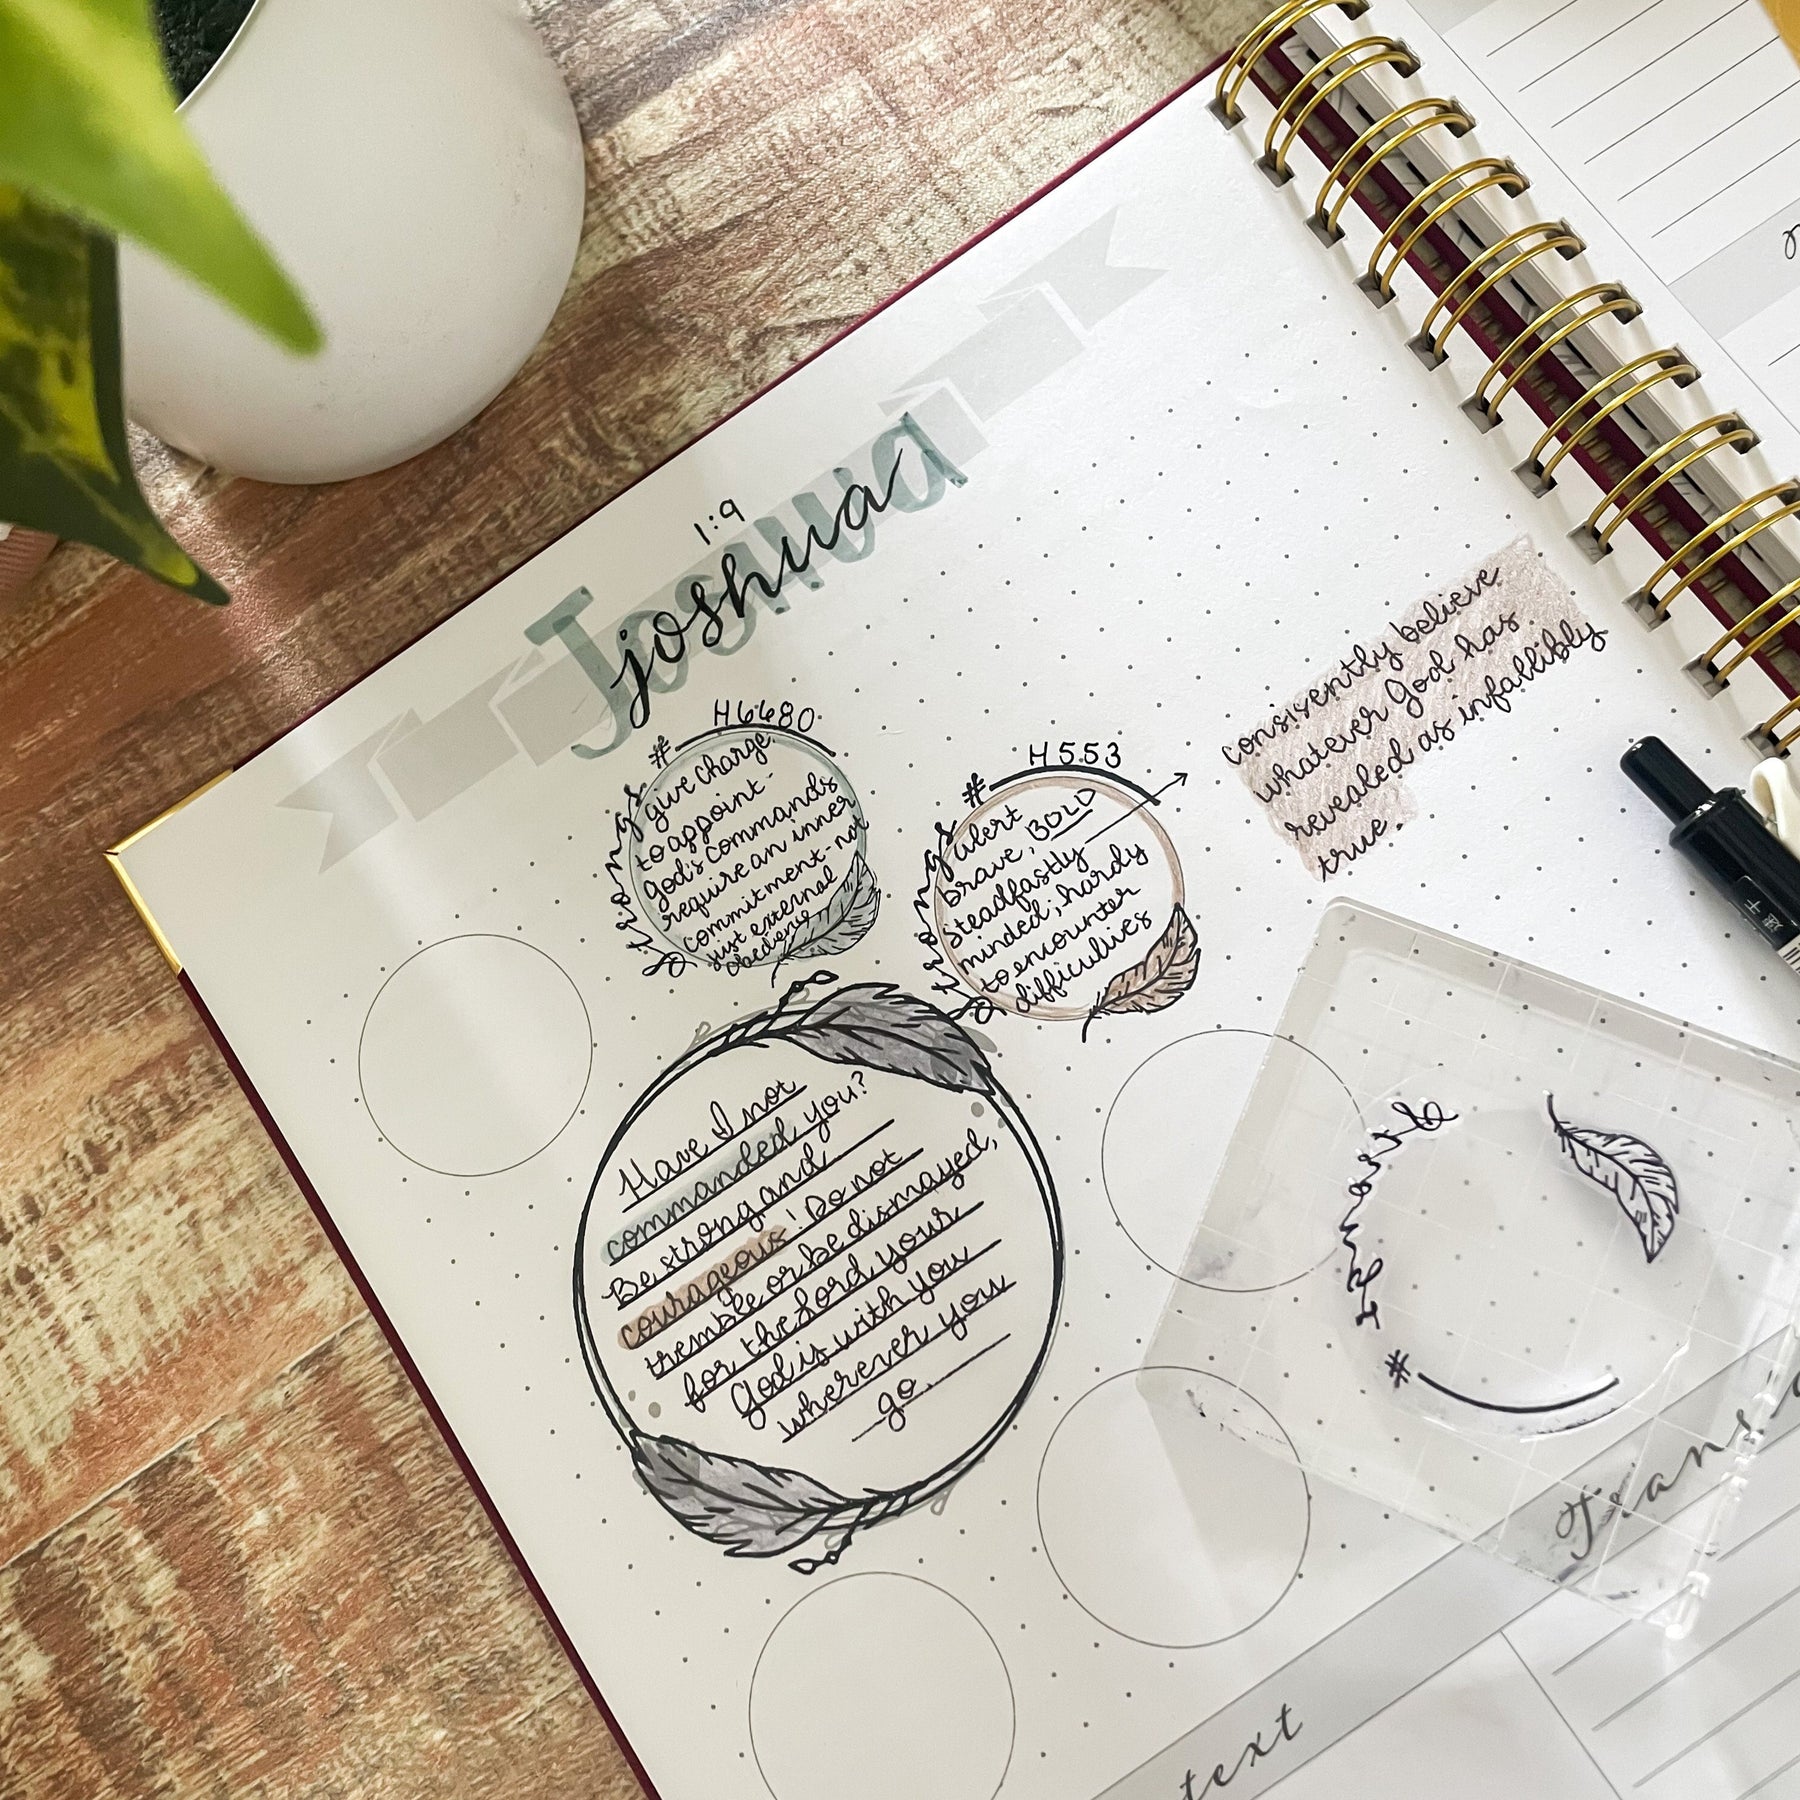 1:9
Joshua
joshua
# H6680
strongs
give charge
to appoint-
God's commands
require an inner
commitment-not
just external
obedience
# H553
strongs
alert
brave, BOLD
steadfastly
minded, hardy
to encounter
difficulties
consisently believe
whatever God has
revealed as infallibly
true.
Have I not
commanded you?
Be strong and
courageous! Do not
tremble or be dismayed,
for the Lord your
God is with you
wherever you
go.
strongs
#
Trans
text